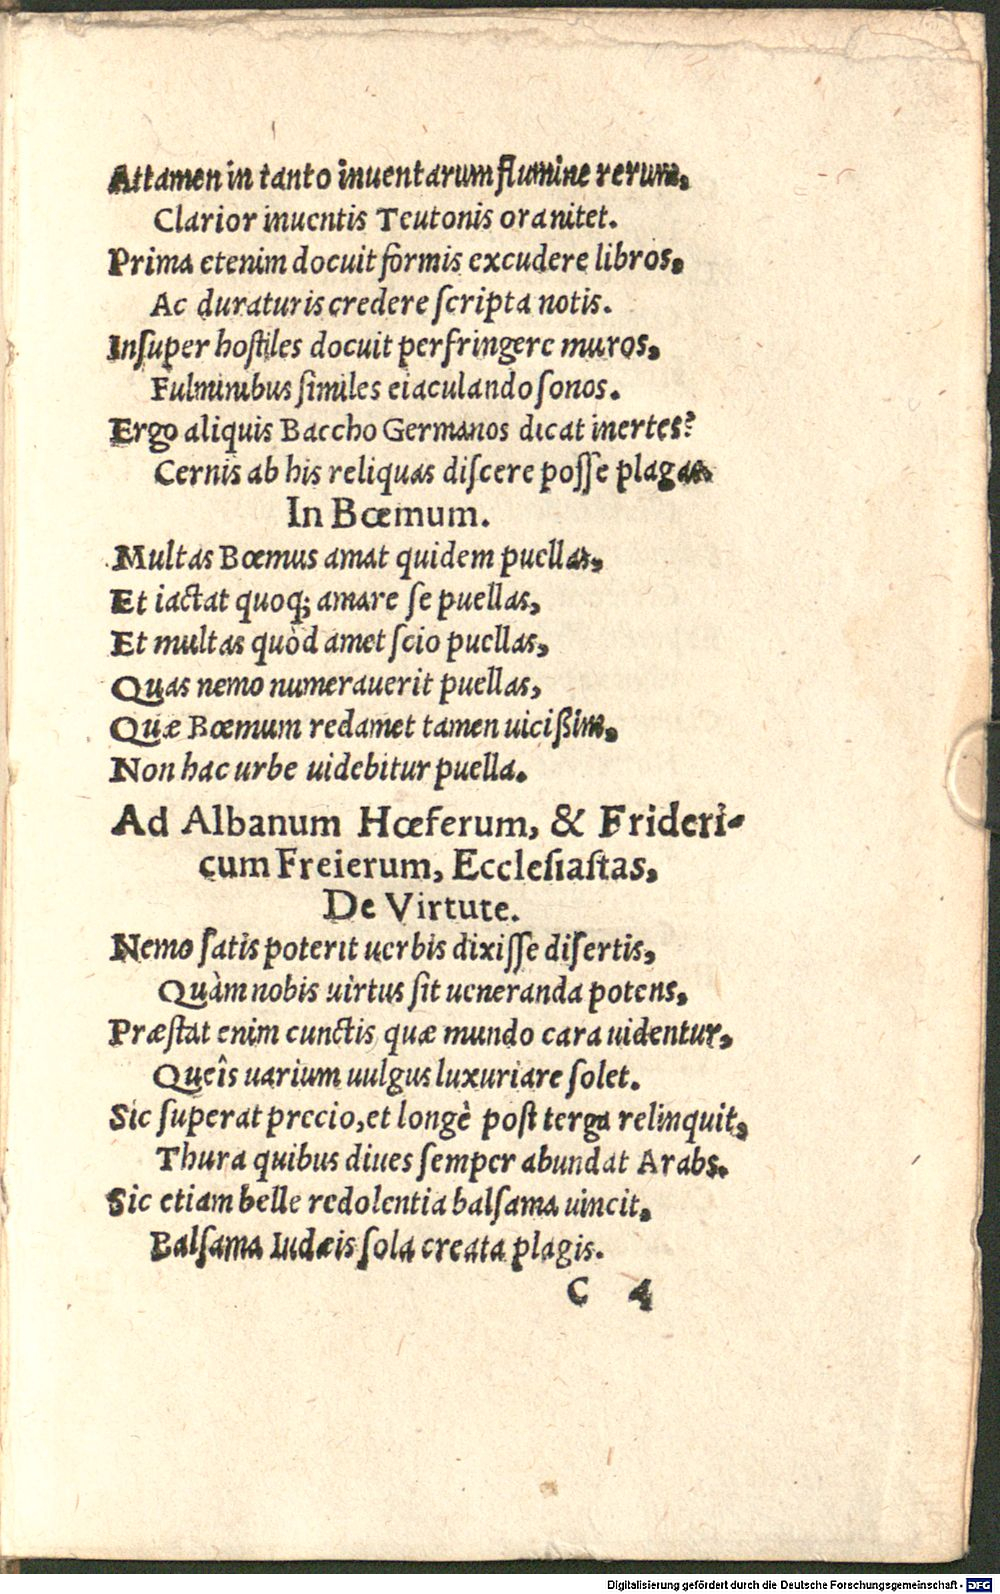 Attamen in tanto inuentarum flumine rerum,
Clarior inuentis Teutonis ora nitet.
Prima etenim docuit formis excudere libros,
Ac duraturis credere ſcripta notis.
Inſuper hoſtiles docuit perfringere muros,
Fulminibus ſimiles eiaculando ſonos.
Ergo aliquis Baccho Germanos dicat inertes?
Cernis ab his reliquas diſcere poſſe plagas.
In Bœmum.
Multas Bœmus amat quidem puellas,
Et iactat quoq; amare ſe puellas,
Et multas quòd amet ſcio puellas,
Quas nemo numerauerit puellas,
Quæ Bœmum redamet tamen uicißim,
Non hac urbe uidebitur puella.
Ad Albanum Hœferum, & Frideri-
cum Freierum, Eccleſiaſtas,
De Virtute.
Nemo ſatis poterit uerbis dixiſſe diſertis,
Quàm nobis uirtus ſit ueneranda potens,
Præſtat enim cunctis quæ mundo cara uidentur,
Queîs uarium uulgus luxuriare ſolet.
Sic ſuperat precio, et longè poſt terga relinquit,
Thura quibus diues ſemper abundat Arabs.
Sic etiam belle redolentia balſama uincit,
Balſama Iudæis ſola creata plagis.
C 4
Digitalisierung gefördert durch die Deutsche Forschungsgemeinschaft - DFG